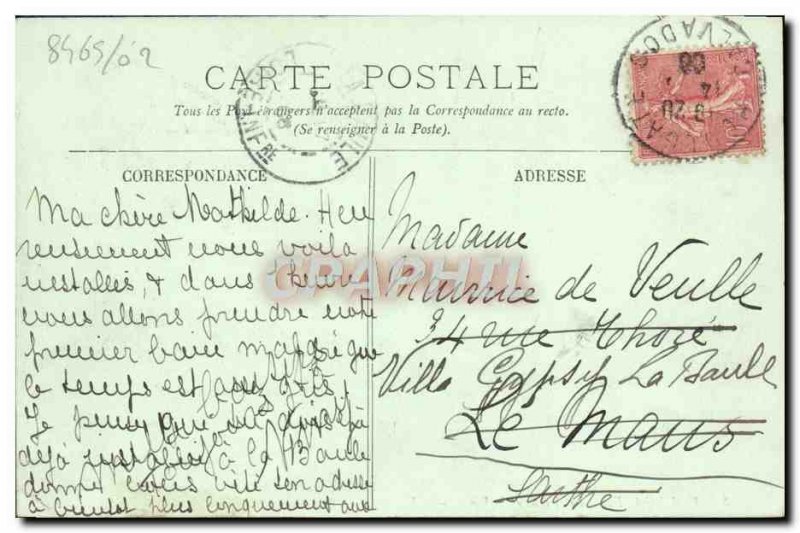 8465/02
CARTE POSTALE
Tous les Pays étrangers n'acceptent pas la Correspondance au recto.
(Se renseigner à la Poste).
CORRESPONDANCE
Ma chère Mathilde. Heu
reusement nous voila
installés, & dans 1 heure
nous allons prendre notre
premier bain malgré que
le temps est gris
Je pense que
déjà installée à la Baule
donne vite ton adresse
à bientot plus longuement
ADRESSE
Madame
Maurice de Veulle
34 rue Thoré
Villa Gypsy La Baule
Le Mans
Sarthe
CALVADOS
CRAPHTI